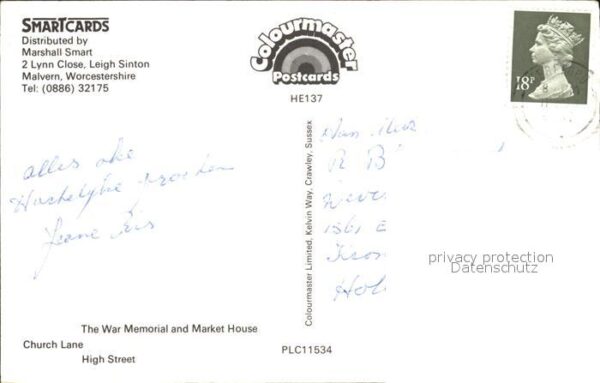 SMARTCARDS
Distributed by
Marshall Smart
2 Lynn Close, Leigh Sinton
Malvern, Worcestershire
Tel: (0886) 32175
Colourmaster
Postcards
HE137
18P
alles oke
Hartelijke groeten
R B
1861 E
Hol
privacy protection
Datenschutz
Colourmaster Limited, Kelvin Way, Crawley, Sussex
The War Memorial and Market House
Church Lane
High Street
PLC11534